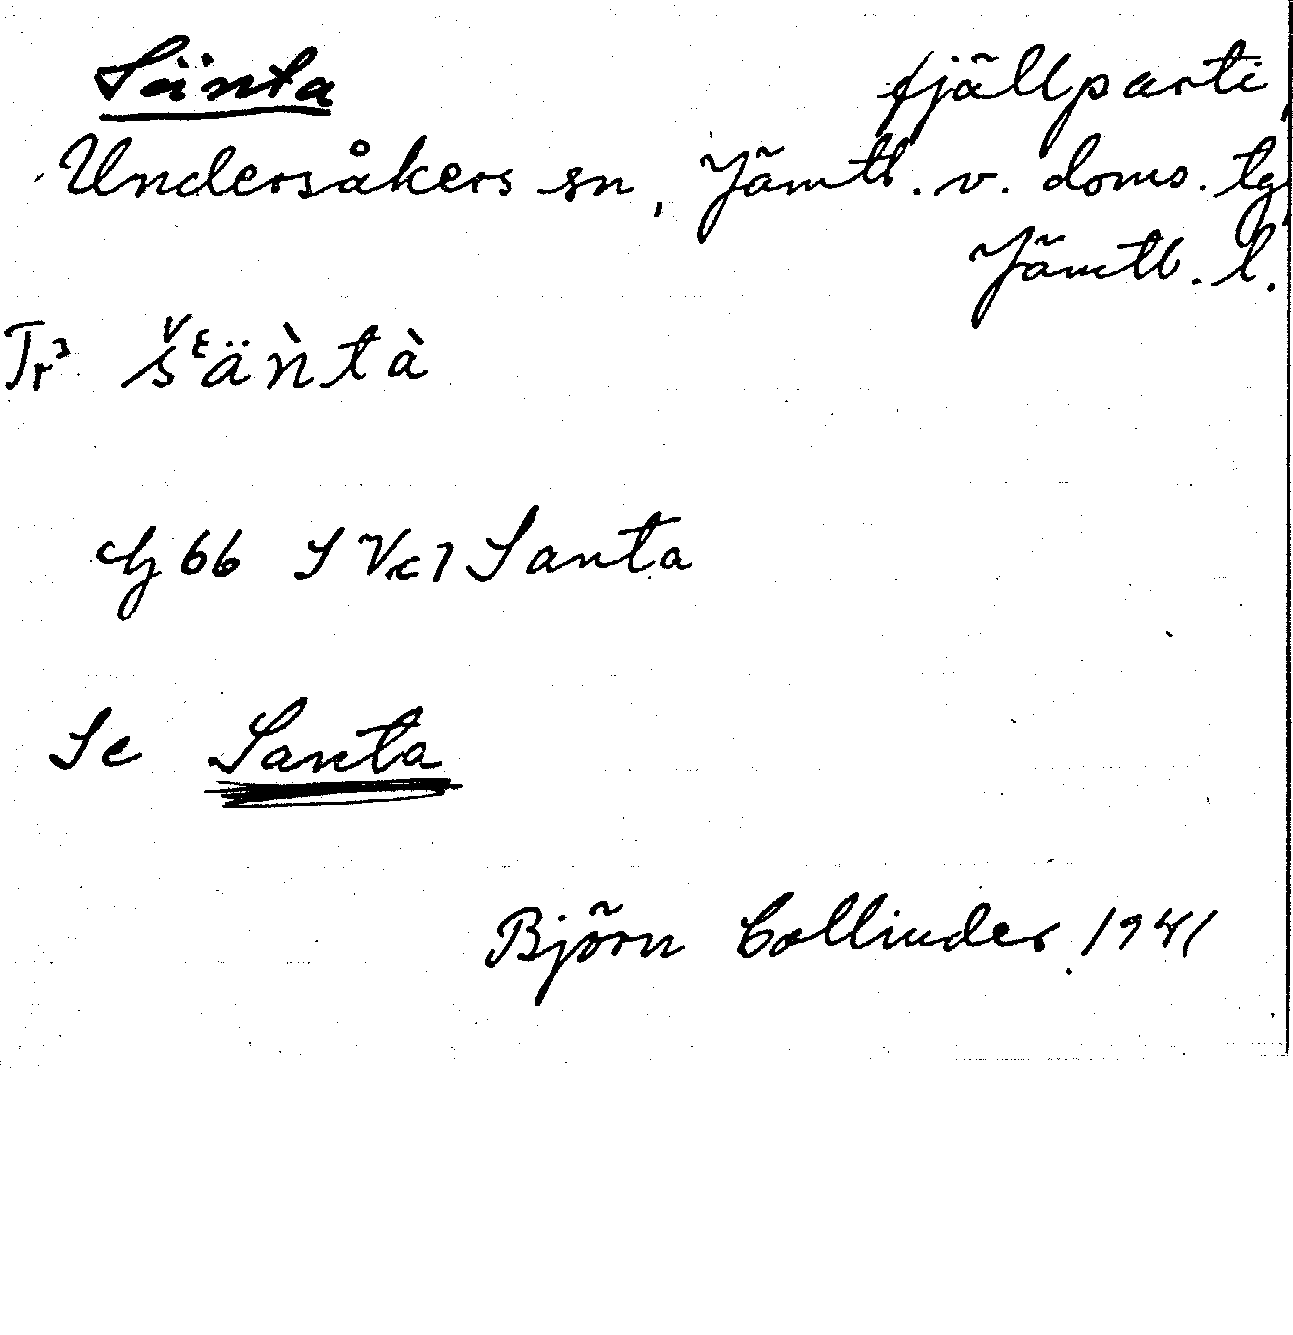 Sänta fjällparti,
Undersåkers sn, Jämtl. v. doms. tg,
Jämtl. l.
Tr³ šᵋäǹtà
66 S Santa
Se Santa
Björn Collinder 1941